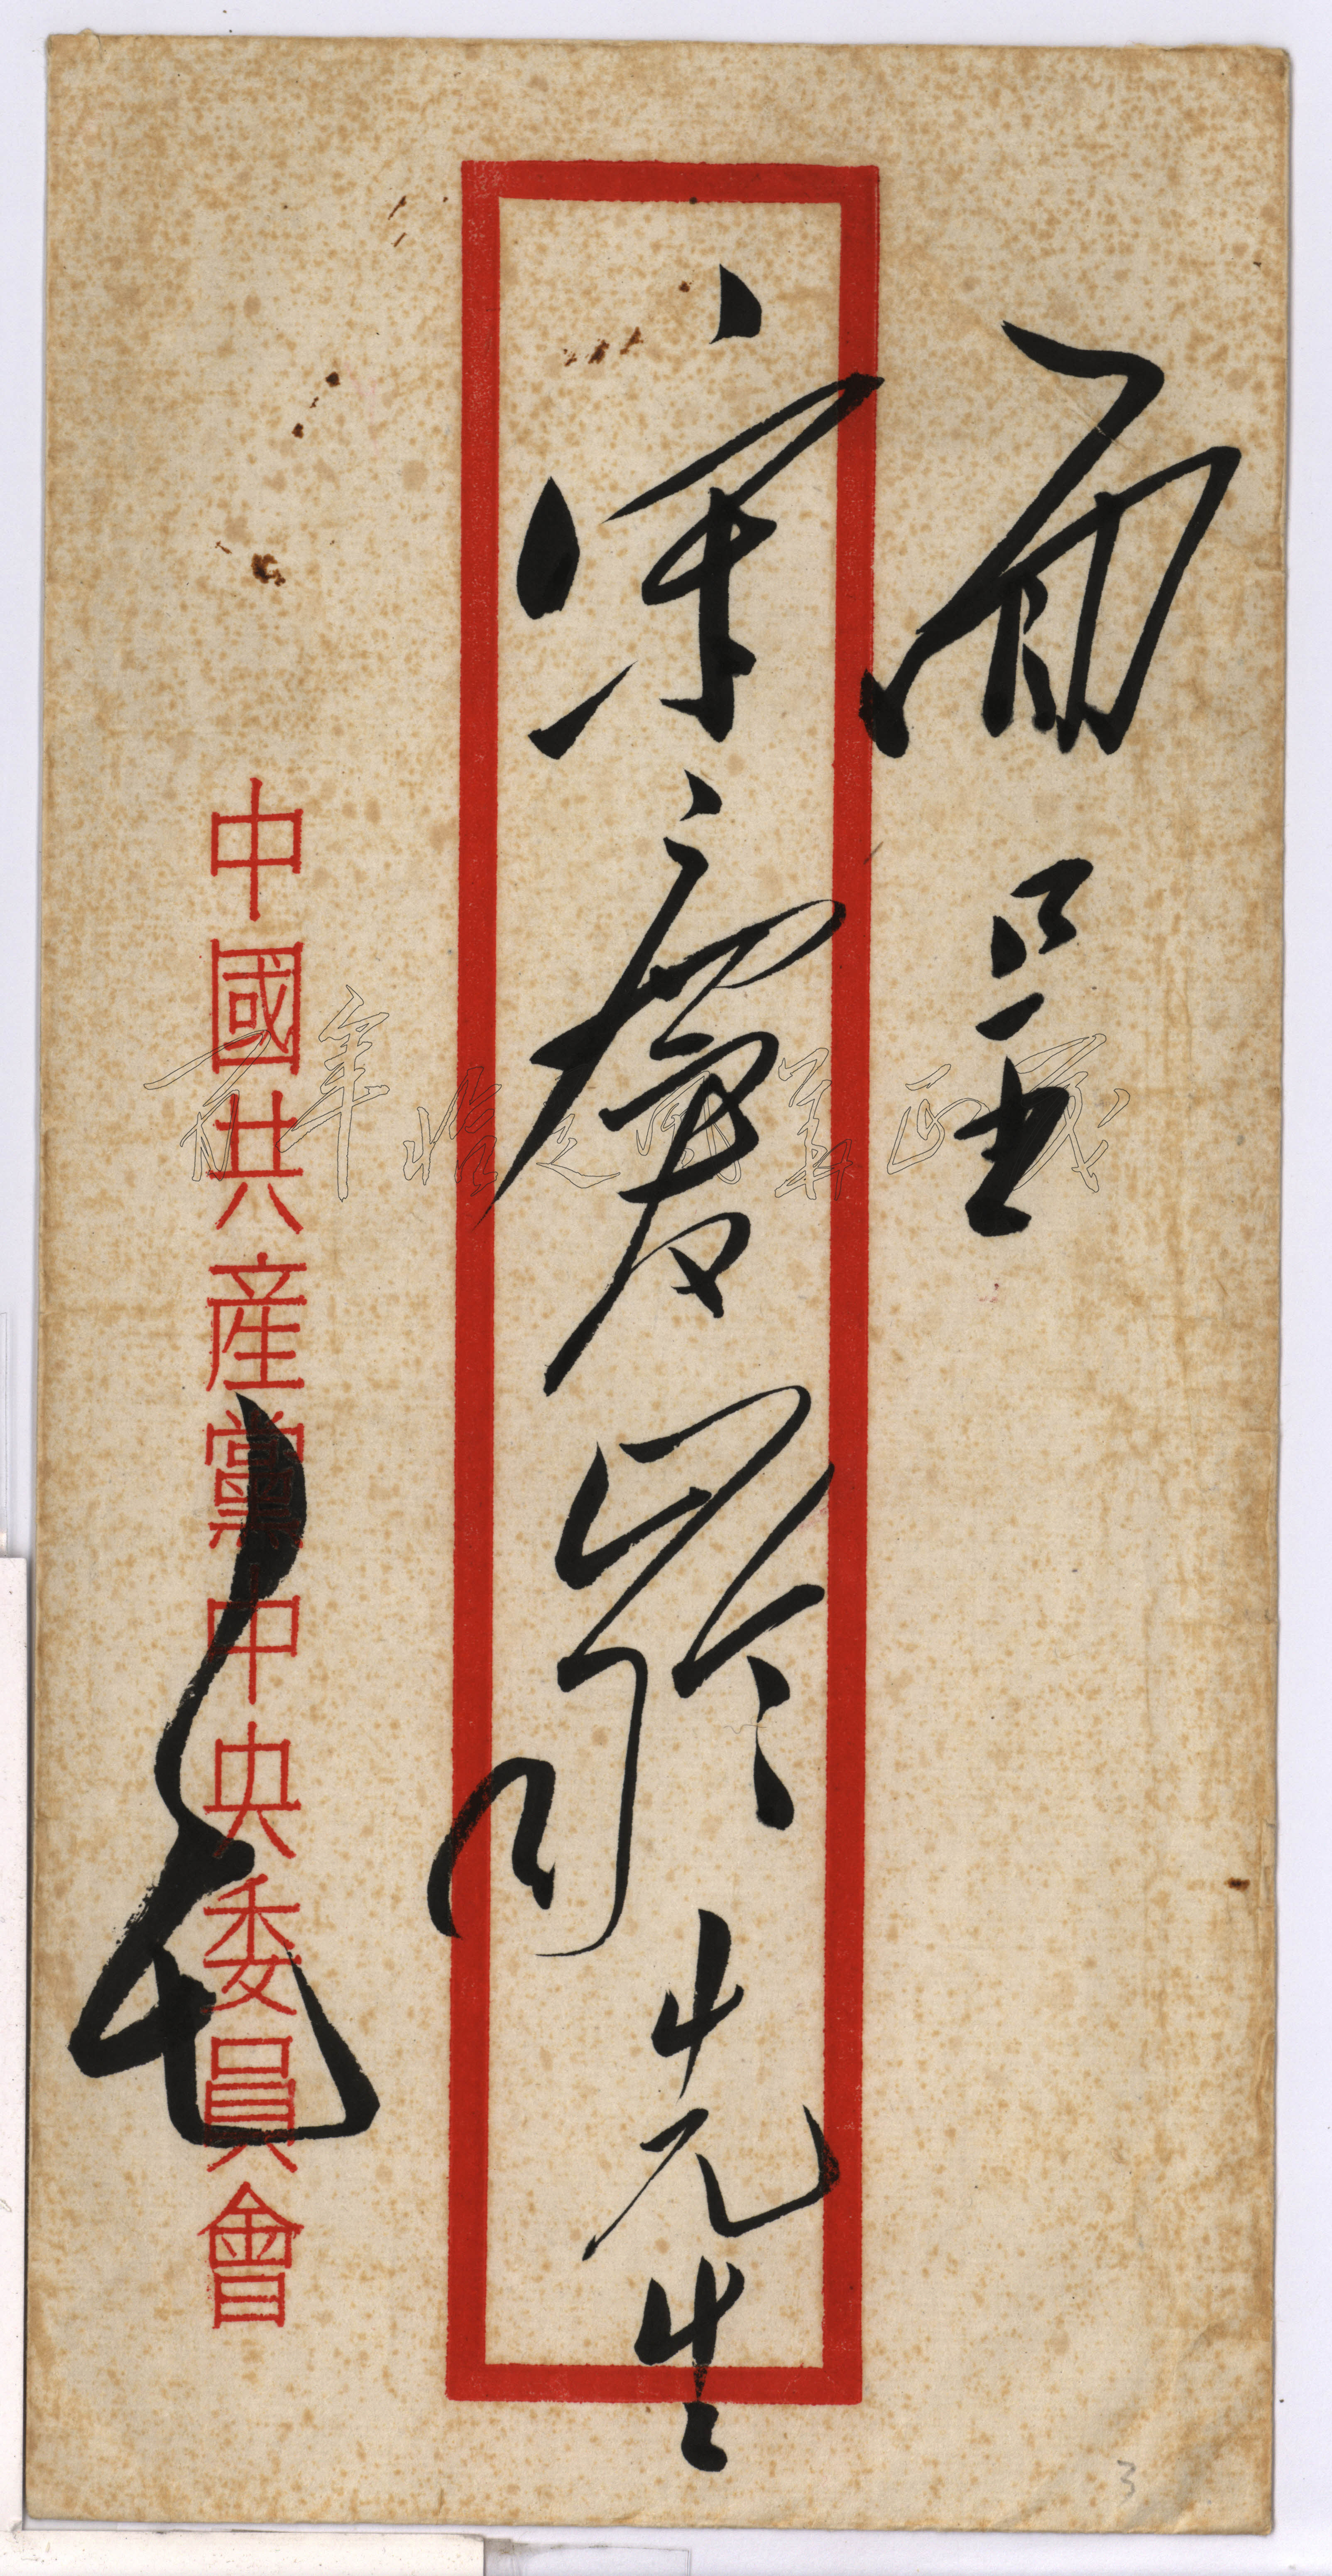 面呈
宋慶齡先生
中國共產黨中央委員會
毛
3